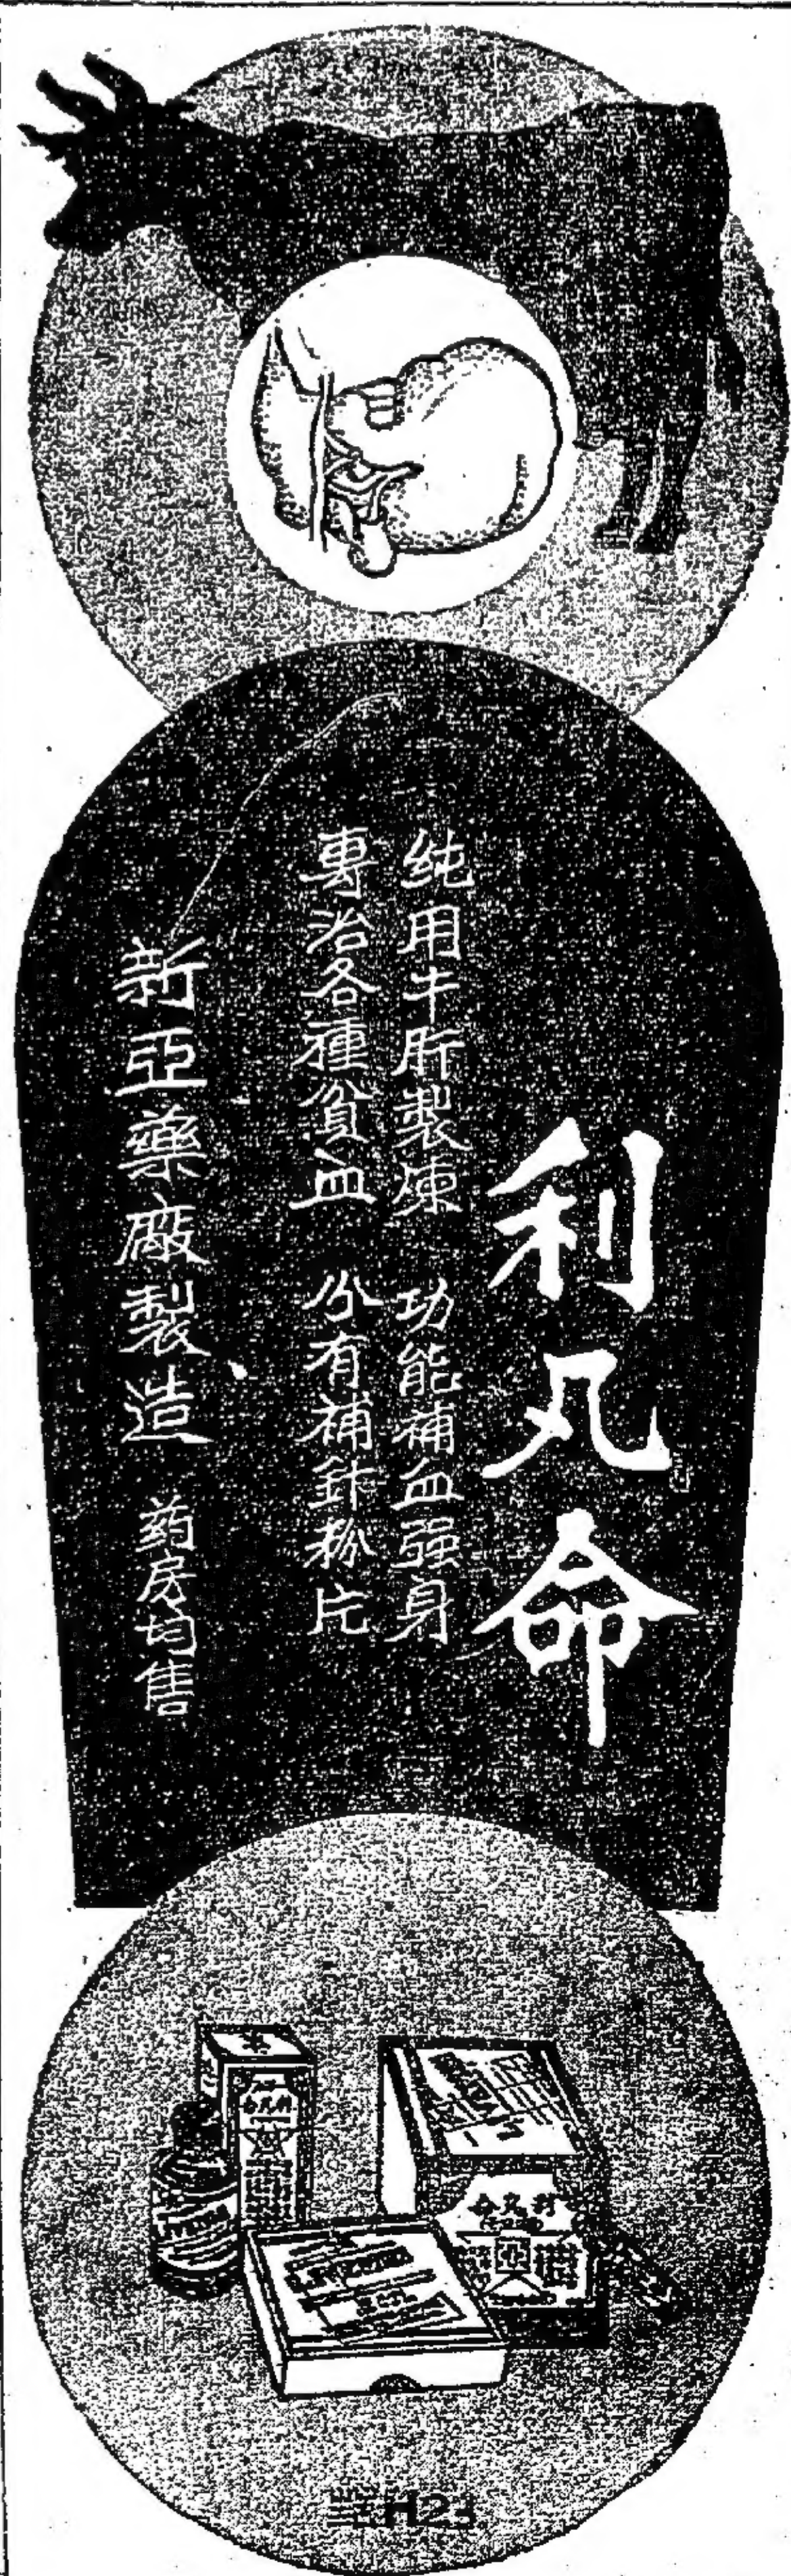 利凡命
纯用牛肝製煉 功能補血强身
專治各種貧血 分有補針粉片
新亞藥廠製造 药房均售
利凡命